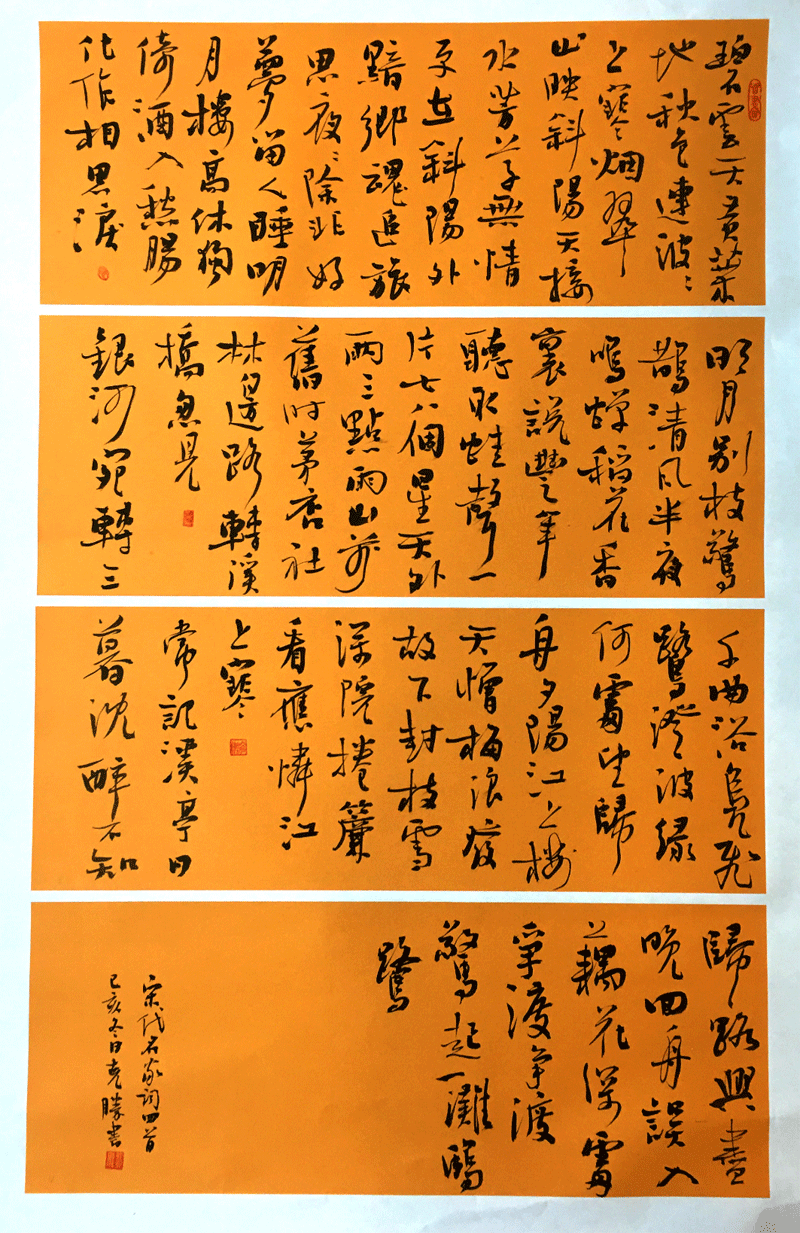 碧雲天黃葉
地秋色連波〻
上寒烟翠
山映斜陽天接
水芳草無情
更在斜陽外
黯鄉魂追旅
思夜〻除非好
夢留人睡明
月樓高休獨
倚酒入愁腸
化作相思淚
明月別枝驚
鵲清風半夜
鳴蟬稻花香
裏說豐年
聽取蛙聲一
片七八個星天外
兩三點雨山前
舊時茅店社
林邊路轉溪
橋忽見
銀河宛轉三
千曲浴鳧飛
鷺澄波綠
何處望歸
舟夕陽江上樓
天憎梅浪發
故下封枝雪
深院捲簾
看應憐江
上寒
常記溪亭日
暮沈醉不知
歸路興盡
晚回舟誤入
藕花深處
爭渡爭渡
驚起一灘鷗
鷺
宋代名家詞四首
己亥冬日克勝書